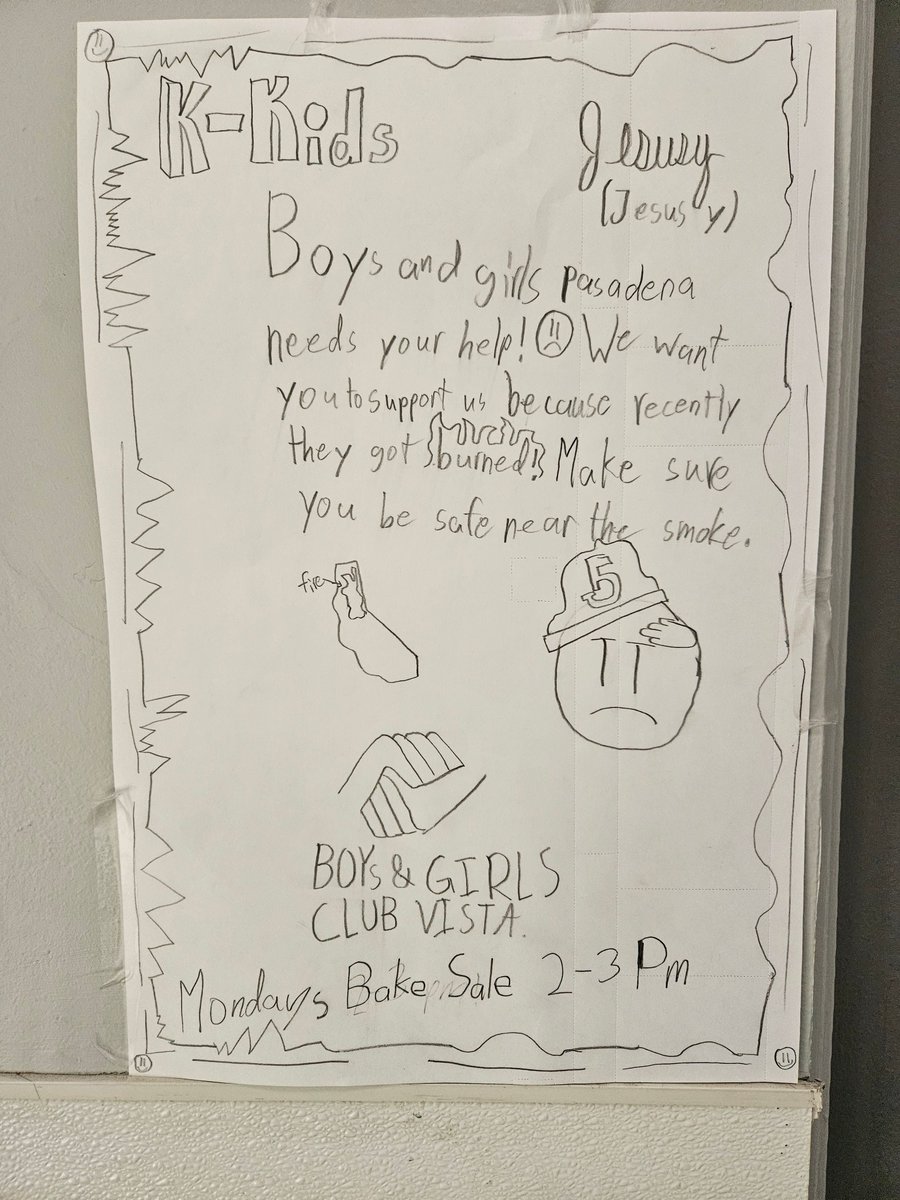 K-Kids
Jesusy
(Jesus y)
Boys and girls pasadena
needs your help! We want
you to support us because recently
they got burned! Make sure
you be safe near the smoke.
fire
5
BOYS & GIRLS
CLUB VISTA.
Mondays Bake Sale 2-3 Pm